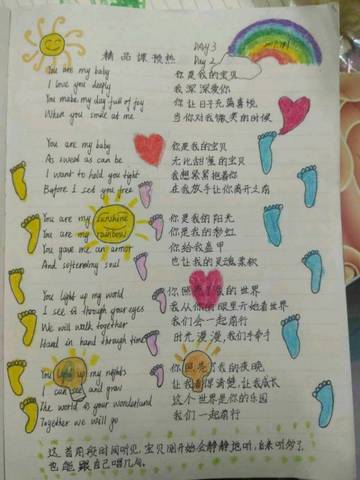 精品课预热
DAY 3
Day 2
You are my baby
I love you deeply
You make my day full of joy
When you smile at me
你是我的宝贝
我深深爱你
你让日子充满喜悦
当你对我微笑的时候
You are my baby
As sweet as can be
I want to hold you tight
Before I set you free
你是我的宝贝
无比甜蜜的宝贝
我想紧紧抱着你
在我放手让你离开之前
You are my sunshine
You are my rainbow
You gave me an armor
And softening soul
你是我的阳光
你是我的彩虹
你给我盔甲
也让我的灵魂柔软
You light up my world
I see it through your eyes
We will walk together
Hand in hand through time
你照亮了我的世界
我从你的眼里开始看世界
我们会一起前行
时光漫漫,我们手牵手
You light up my nights
I can see and grow
The world is your wonderland
Together we will go
你照亮了我的夜晚
让我看得清楚,让我成长
这个世界是你的乐园
我们一起前行
这首用段时间听见,宝贝刚开会静静地听,后来听多了
也能跟自己唱几句.